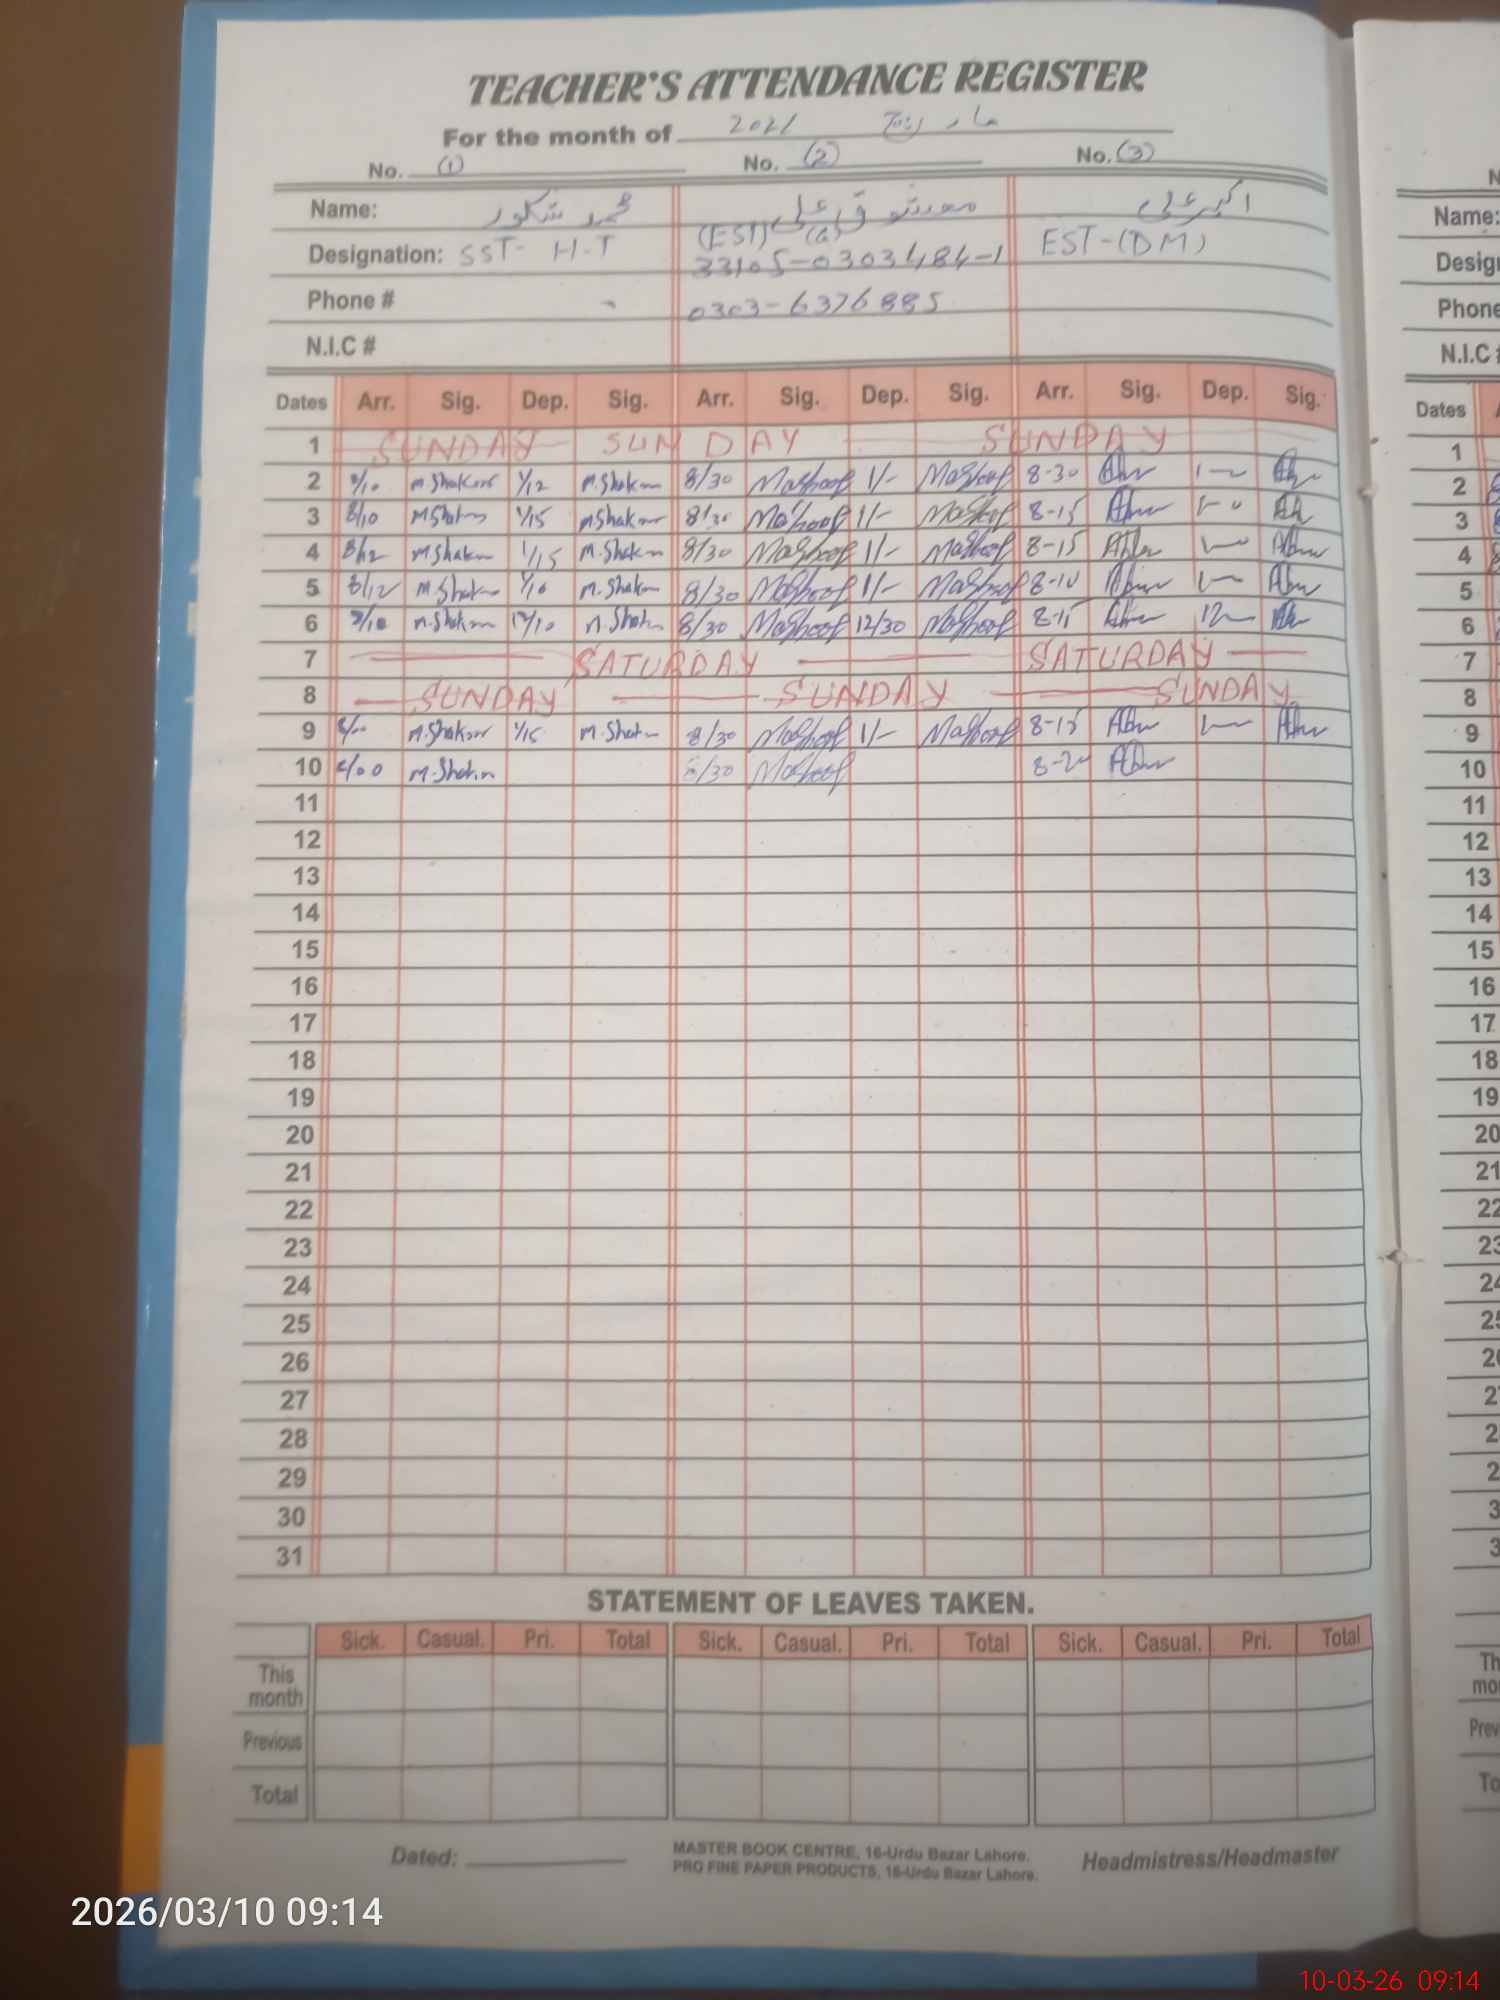 TEACHER'S ATTENDANCE REGISTER
For the month of 2026 مارچ
No. (1) No. (2) No. (3)
Name: محمد شکور معشوق علی اکبر علی
Designation: SST- H.T (EST) (G) 33105-0303484-1 EST-(DM)
Phone # 0303-6376885
N.I.C #
Dates Arr. Sig. Dep. Sig. Arr. Sig. Dep. Sig. Arr. Sig. Dep. Sig.
1 SUNDAY SUNDAY SUNDAY
2 8/10 M.Shakoor 1/12 M.Shakoor 8/30 Mashooq 1/- Mashooq 8-30
3 8/10 M Shakoor 1/15 M Shakoor 8/30 Mashooq 1/- Mashooq 8-15
4 8/12 M.Shakoor 1/15 M.Shakoor 8/30 Mashooq 1/- Mashooq 8-15
5 8/12 M.Shakoor 1/10 M.Shakoor 8/30 Mashooq 1/- Mashooq 8-10
6 8/10 M.Shakoor 12/10 M.Shakoor 8/30 Mashooq 12/30 Mashooq 8-15
7 SATURDAY SATURDAY
8 SUNDAY SUNDAY SUNDAY
9 8/00 M.Shakoor 1/15 M.Shakoor 8/30 Mashooq 1/- Mashooq 8-15
10 8/00 M.Shakoor 8/30 Mashooq 8-20
11
12
13
14
15
16
17
18
19
20
21
22
23
24
25
26
27
28
29
30
31
STATEMENT OF LEAVES TAKEN.
Sick. Casual. Pri. Total Sick. Casual. Pri. Total Sick. Casual. Pri. Total
This month
Previous
Total
Dated:
MASTER BOOK CENTRE, 16-Urdu Bazar Lahore.
PRO FINE PAPER PRODUCTS, 16-Urdu Bazar Lahore.
Headmistress/Headmaster
Name:
Phone
N.I.C #
Dates
1
2
3
4
5
6
7
8
9
10
11
12
13
14
15
16
17
18
19
20
21
22
2026/03/10 09:14
10-03-26 09:14